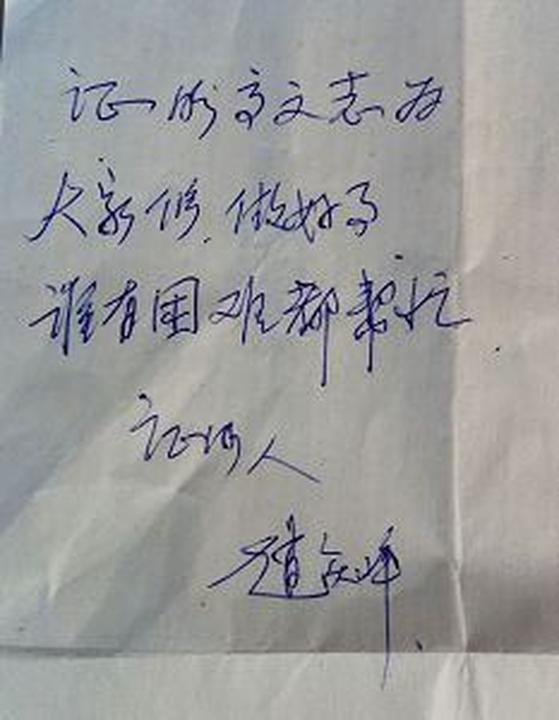 证明高文志为
大家修.做好了
谁有困难都帮忙
证明人
赵庆峰